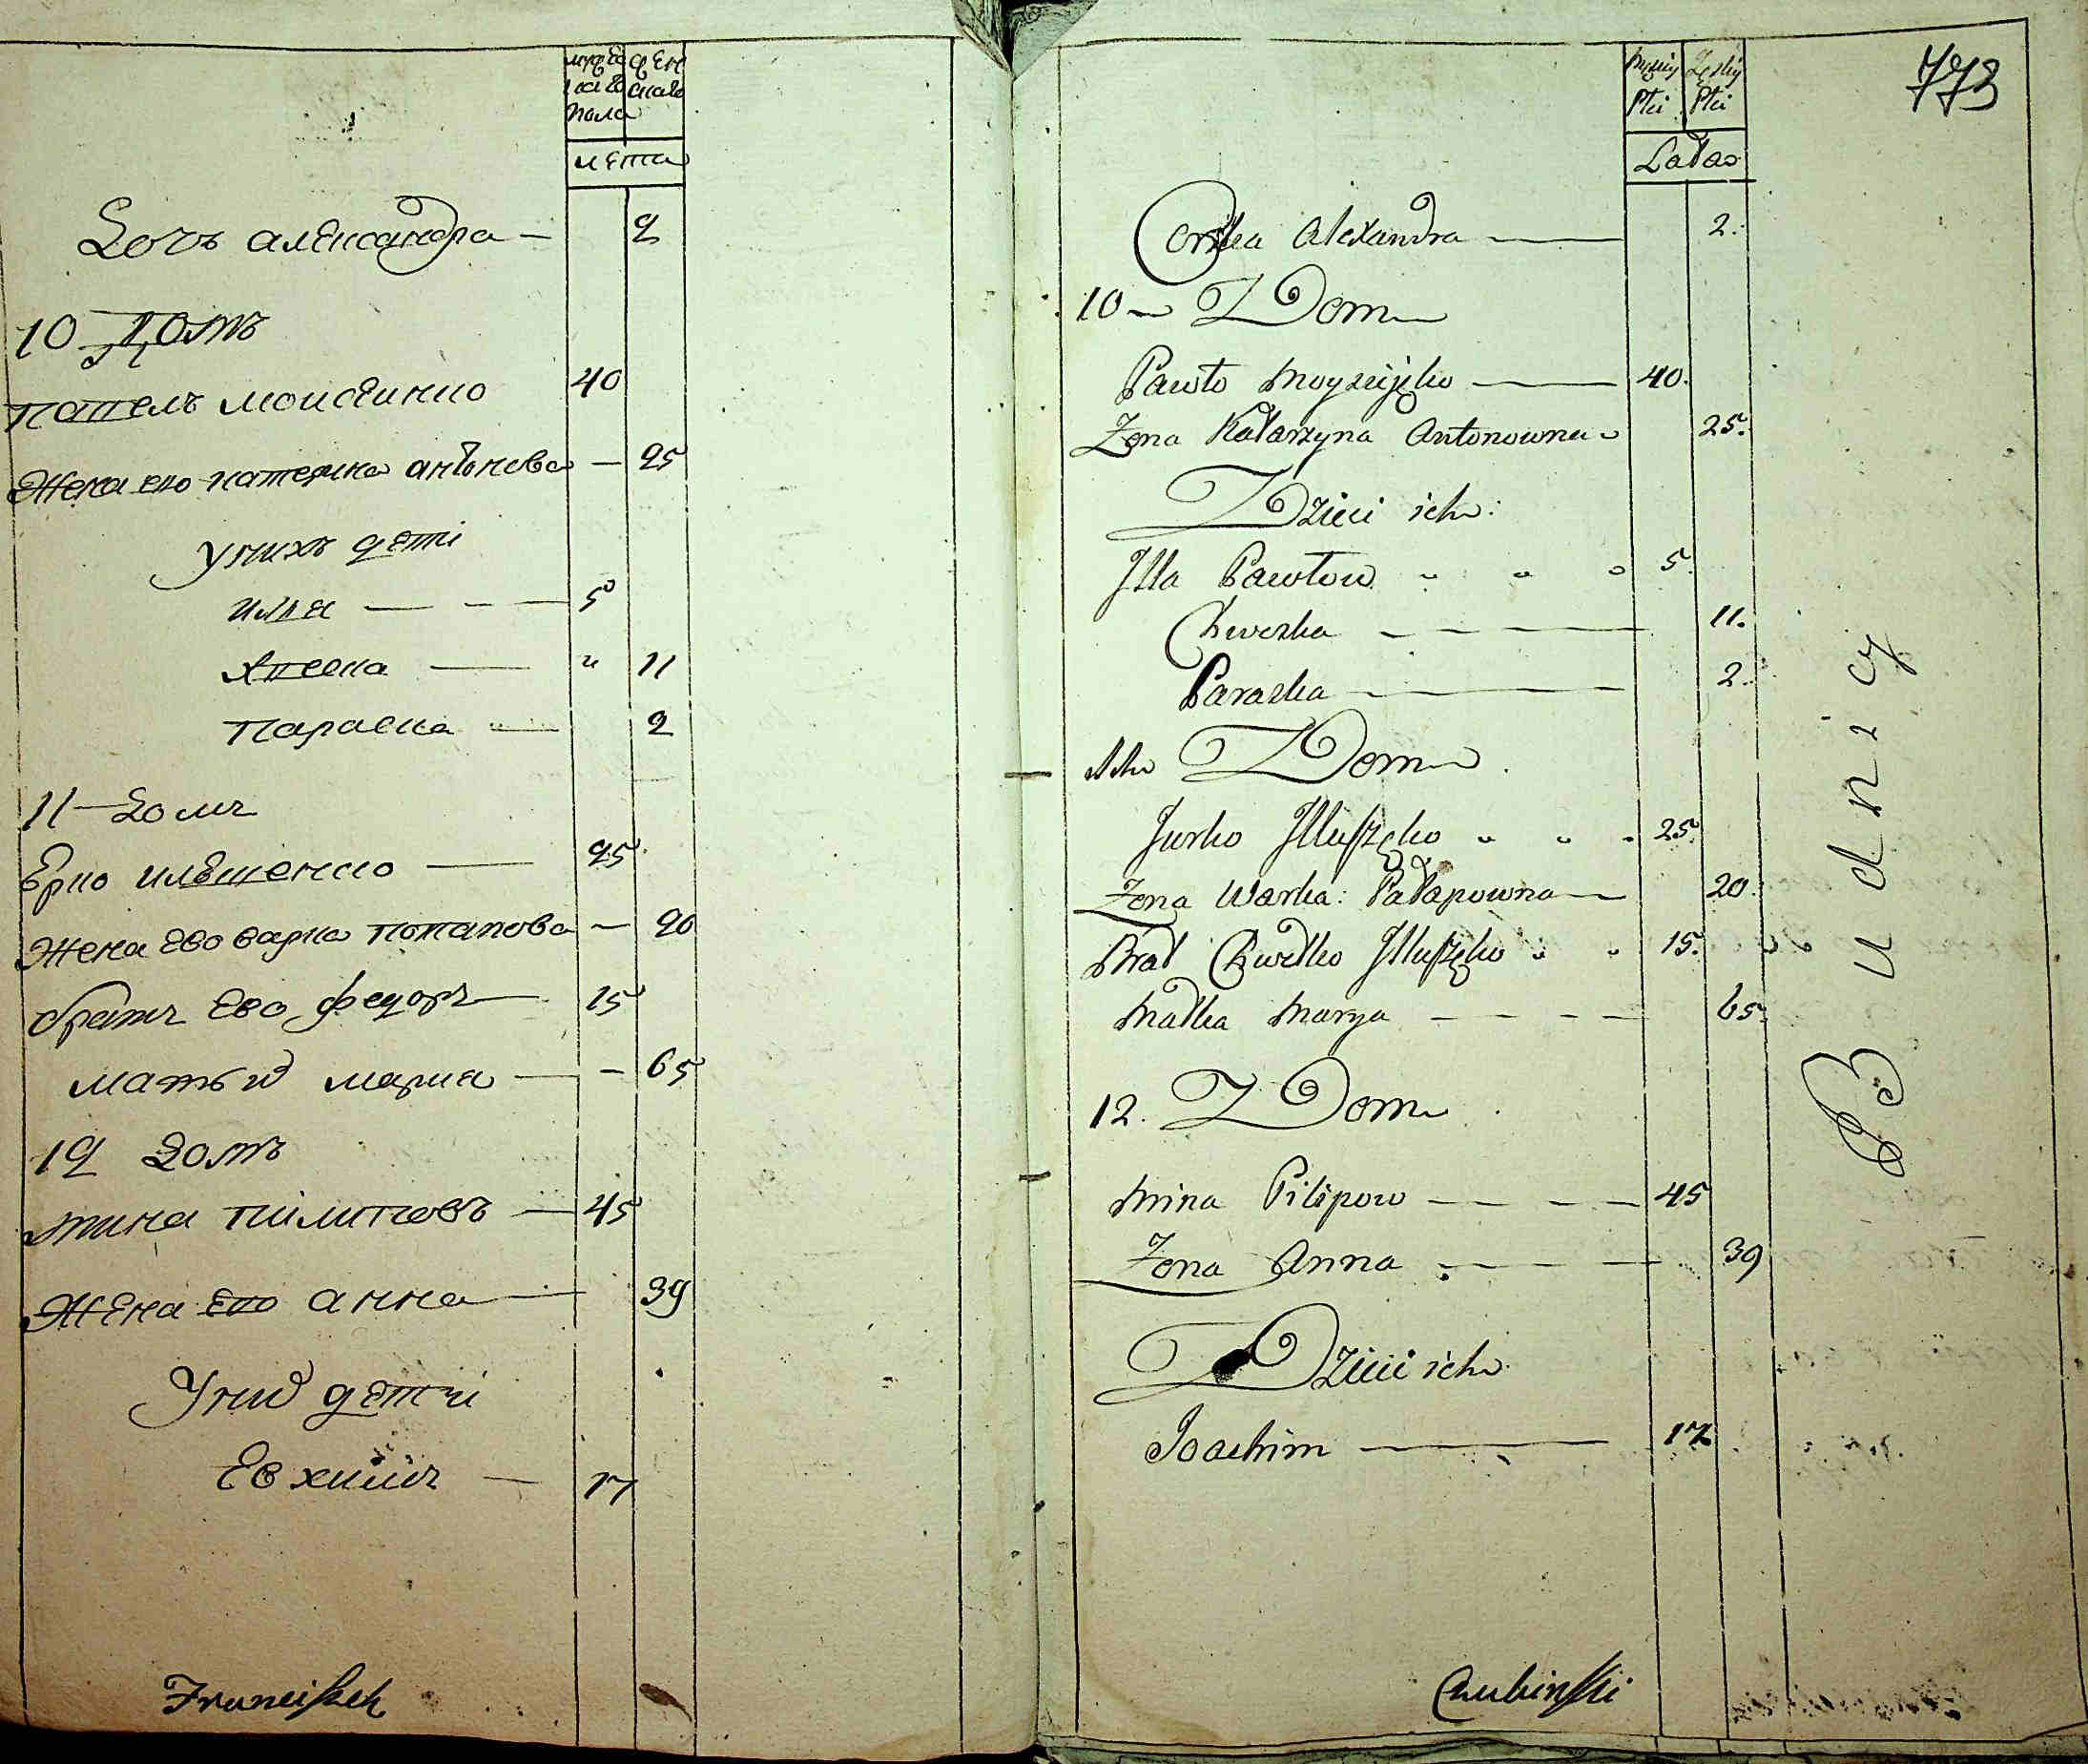 мужеска женска
пола
лета
Дочь александра — 2
10 Домъ
павелъ моисеинко 40
Жена ево катерина антонова — 25
у нихъ дети
илья — — — 5
хвеска — " 11
параска — 2
11 — домъ
Юрко илюшенко — 25
Жена ево варка потапова — 20
братъ ево федоръ — 15
мать их мария — — 65
12 домъ
мина пилиповъ — 45
Жена ево анна — 39
У них дети
Евхимъ — 17
Franciszek
773
Męzkiy Żeńskiy
Płci Płci
Lata
Corka Alexandra — 2.
10 Dom
Pawło Moyzeijęko — 40.
Zona Katarzyna Antonowna 25.
Dzieci ich:
Jlla Pawłow " " " 5.
Chweska — — — 11.
Paraska — 2.
11 Dom
Jurko Jlluszęko " " " 25.
Zona Warka: Patapowna — 20.
Brat Chwedko Jlluszęko " " 15.
Matka Marya — — — — 65.
12. Dom
Mina Pilipow — — — — 45
Zona Anna — — — 39
Dzieci ich
Joachim — 17
Czubinski
Budnicy